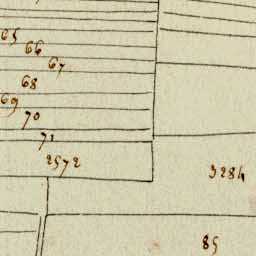 65
66
67
68
69
70
71
2572
3284
85